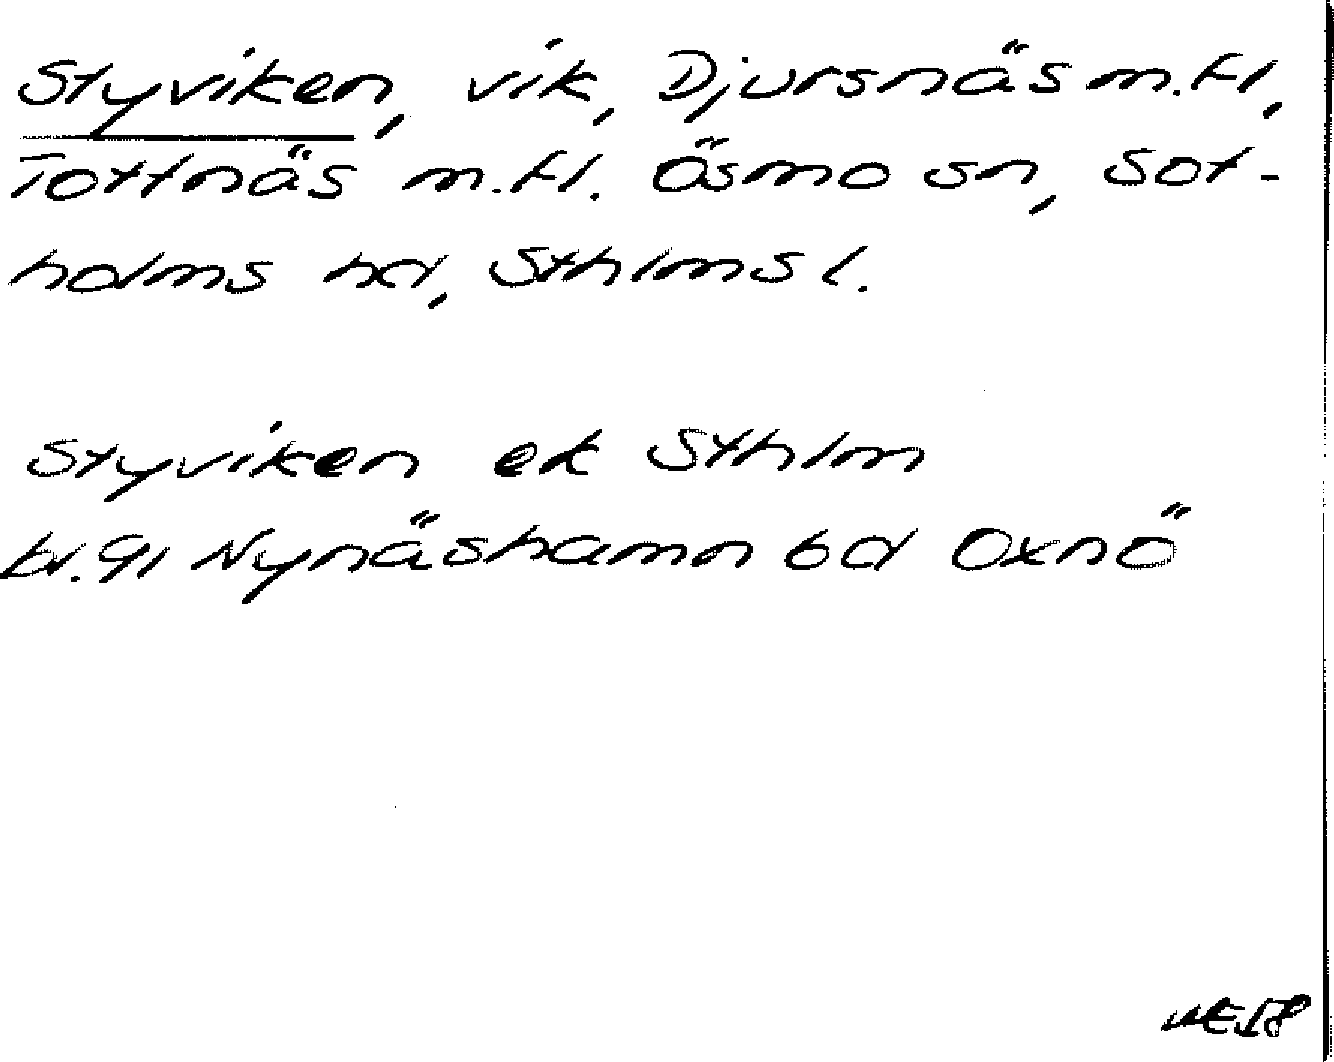 Styviken, vik, Djursnäs m.fl,
Tottnäs m.fl. Ösmo sn, Sot-
holms hd, Sthlms l.
Styviken ek Sthlm
bl. 91 Nynäshamn 6d Oxnö